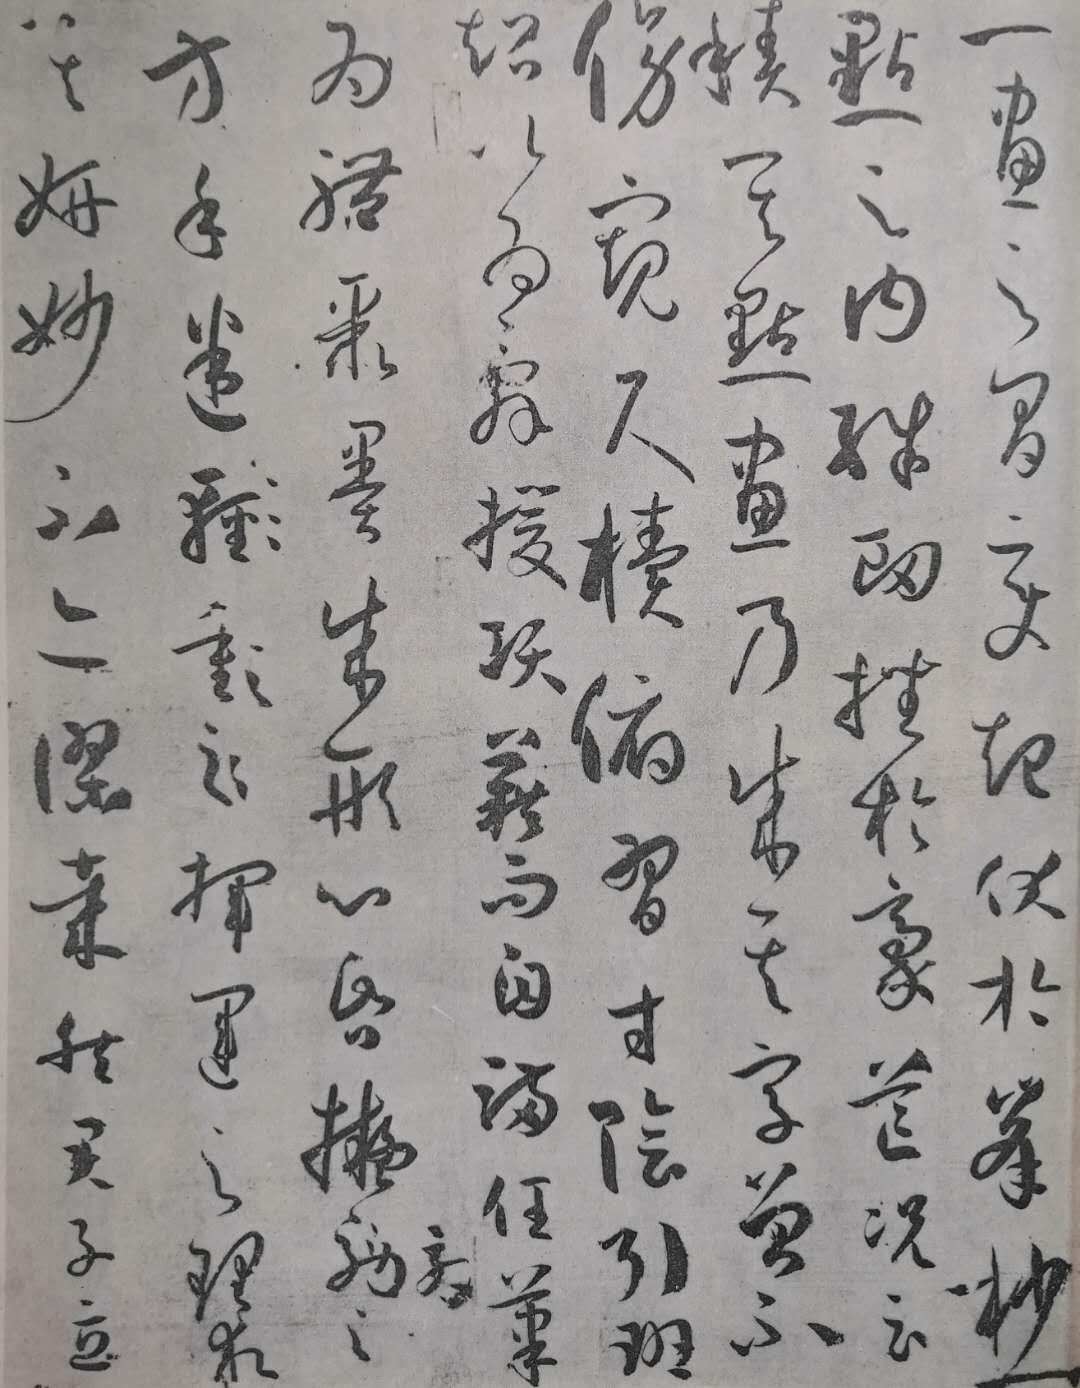 一畫之間變起伏於峯杪
點之內殊衂挫於豪芒況云
積其點畫乃成其字曾不
傍窺尺牘俯習寸陰引班
超以為辭援項籍而自滿任筆
為體聚墨成形心昏擬効之
方手迷揮運之理求
其妍妙不亦謬哉然君子立